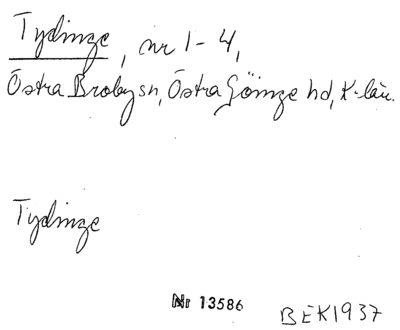 Tydinge, nr 1-4,
Östra Broby sn, Östra Göinge hd, K-län.
Tydinge
Nr 13586
BEK1937